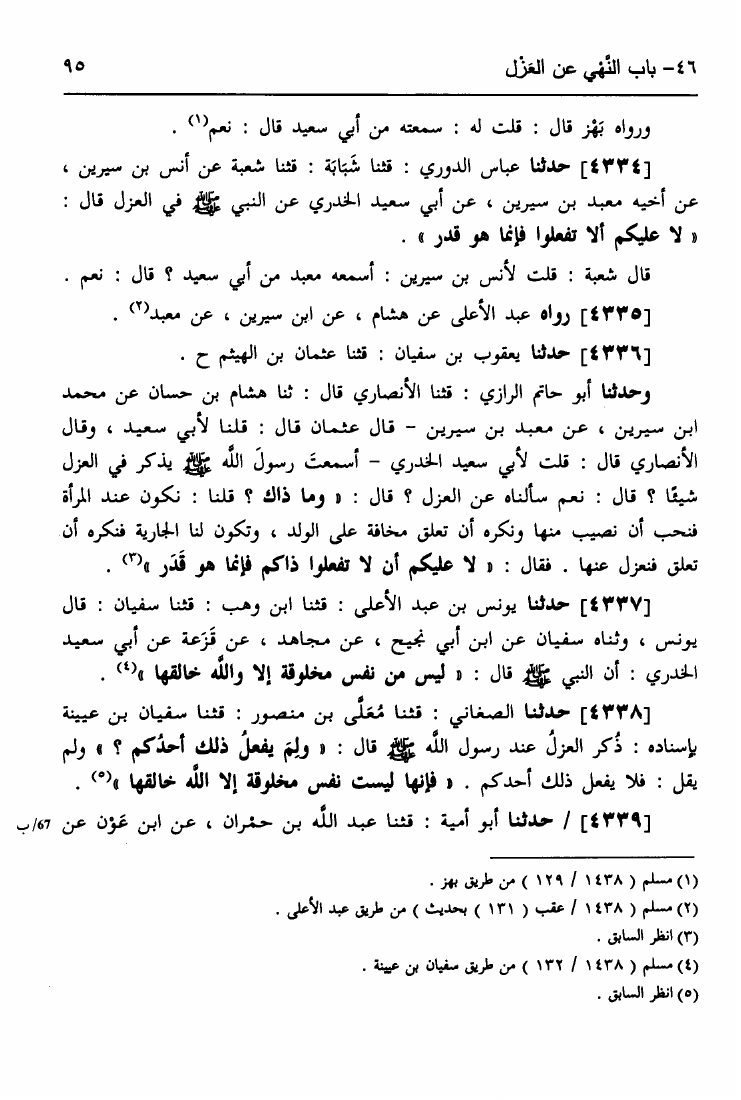 ٤٦- باب النَّهْي عن العَزْل ٩٥
ورواه بَهْز قال : قلت له : سمعته من أبي سعيد قال : نعم(١) .
[٤٣٣٤] حدثنا عباس الدوري : قثنا شَبَابَة : قثنا شعبة عن أنس بن سيرين ،
عن أخيه معبد بن سيرين ، عن أبي سعيد الخدري عن النبي ﷺ في العزل قال :
« لا عليكم ألا تفعلوا فإنما هو قدر » .
قال شعبة : قلت لأنس بن سيرين : أسمعه معبد من أبي سعيد ؟ قال : نعم .
[٤٣٣٥] رواه عبد الأعلى عن هشام ، عن ابن سيرين ، عن معبد(٢) .
[٤٣٣٦] حدثنا يعقوب بن سفيان : قثنا عثمان بن الهيثم ح .
وحدثنا أبو حاتم الرازي : قثنا الأنصاري قال : ثنا هشام بن حسان عن محمد
ابن سيرين ، عن معبد بن سيرين - قال عثمان قال : قلنا لأبي سعيد ، وقال
الأنصاري قال : قلت لأبي سعيد الخدري - أسمعتَ رسولَ اللَّه ﷺ يذكر في العزل
شيئًا ؟ قال : نعم سألناه عن العزل ؟ قال : « وما ذاك ؟ قلنا : نكون عند المرأة
فنحب أن نصيب منها ونكره أن تعلق مخافة على الولد ، وتكون لنا الجارية فنكره أن
تعلق فنعزل عنها . فقال : « لا عليكم أن لا تفعلوا ذاكم فإنما هو قَدَر »(٣) .
[٤٣٣٧] حدثنا يونس بن عبد الأعلى : قثنا ابن وهب : قثنا سفيان : قال
يونس ، وثناه سفيان عن ابن أبي نجيح ، عن مجاهد ، عن قَزَعة عن أبي سعيد
الخدري : أن النبي ﷺ قال : « ليس من نفس مخلوقة إلا واللَّه خالقها »(٤) .
[٤٣٣٨] حدثنا الصغاني : قثنا مُعَلَّى بن منصور : قثنا سفيان بن عيينة
بإسناده : ذُكر العزلُ عند رسول اللَّه ﷺ قال : « ولِمَ يفعلُ ذلك أحدُكم ؟ » ولم
يقل : فلا يفعل ذلك أحدكم . « فإنها ليست نفس مخلوقة إلا اللَّه خالقها »(٥) .
[٤٣٣٩] / حدثنا أبو أمية : قثنا عبد اللَّه بن حمْران ، عن ابن عَوْن عن 67/ب
(١) مسلم ( ١٤٣٨ / ١٢٩ ) من طريق بهز .
(٢) مسلم ( ١٤٣٨ / عقب ( ١٣١ ) بحديث ) من طريق عبد الأعلى .
(٣) انظر السابق .
(٤) مسلم ( ١٤٣٨ / ١٣٢ ) من طريق سفيان بن عيينة .
(٥) انظر السابق .